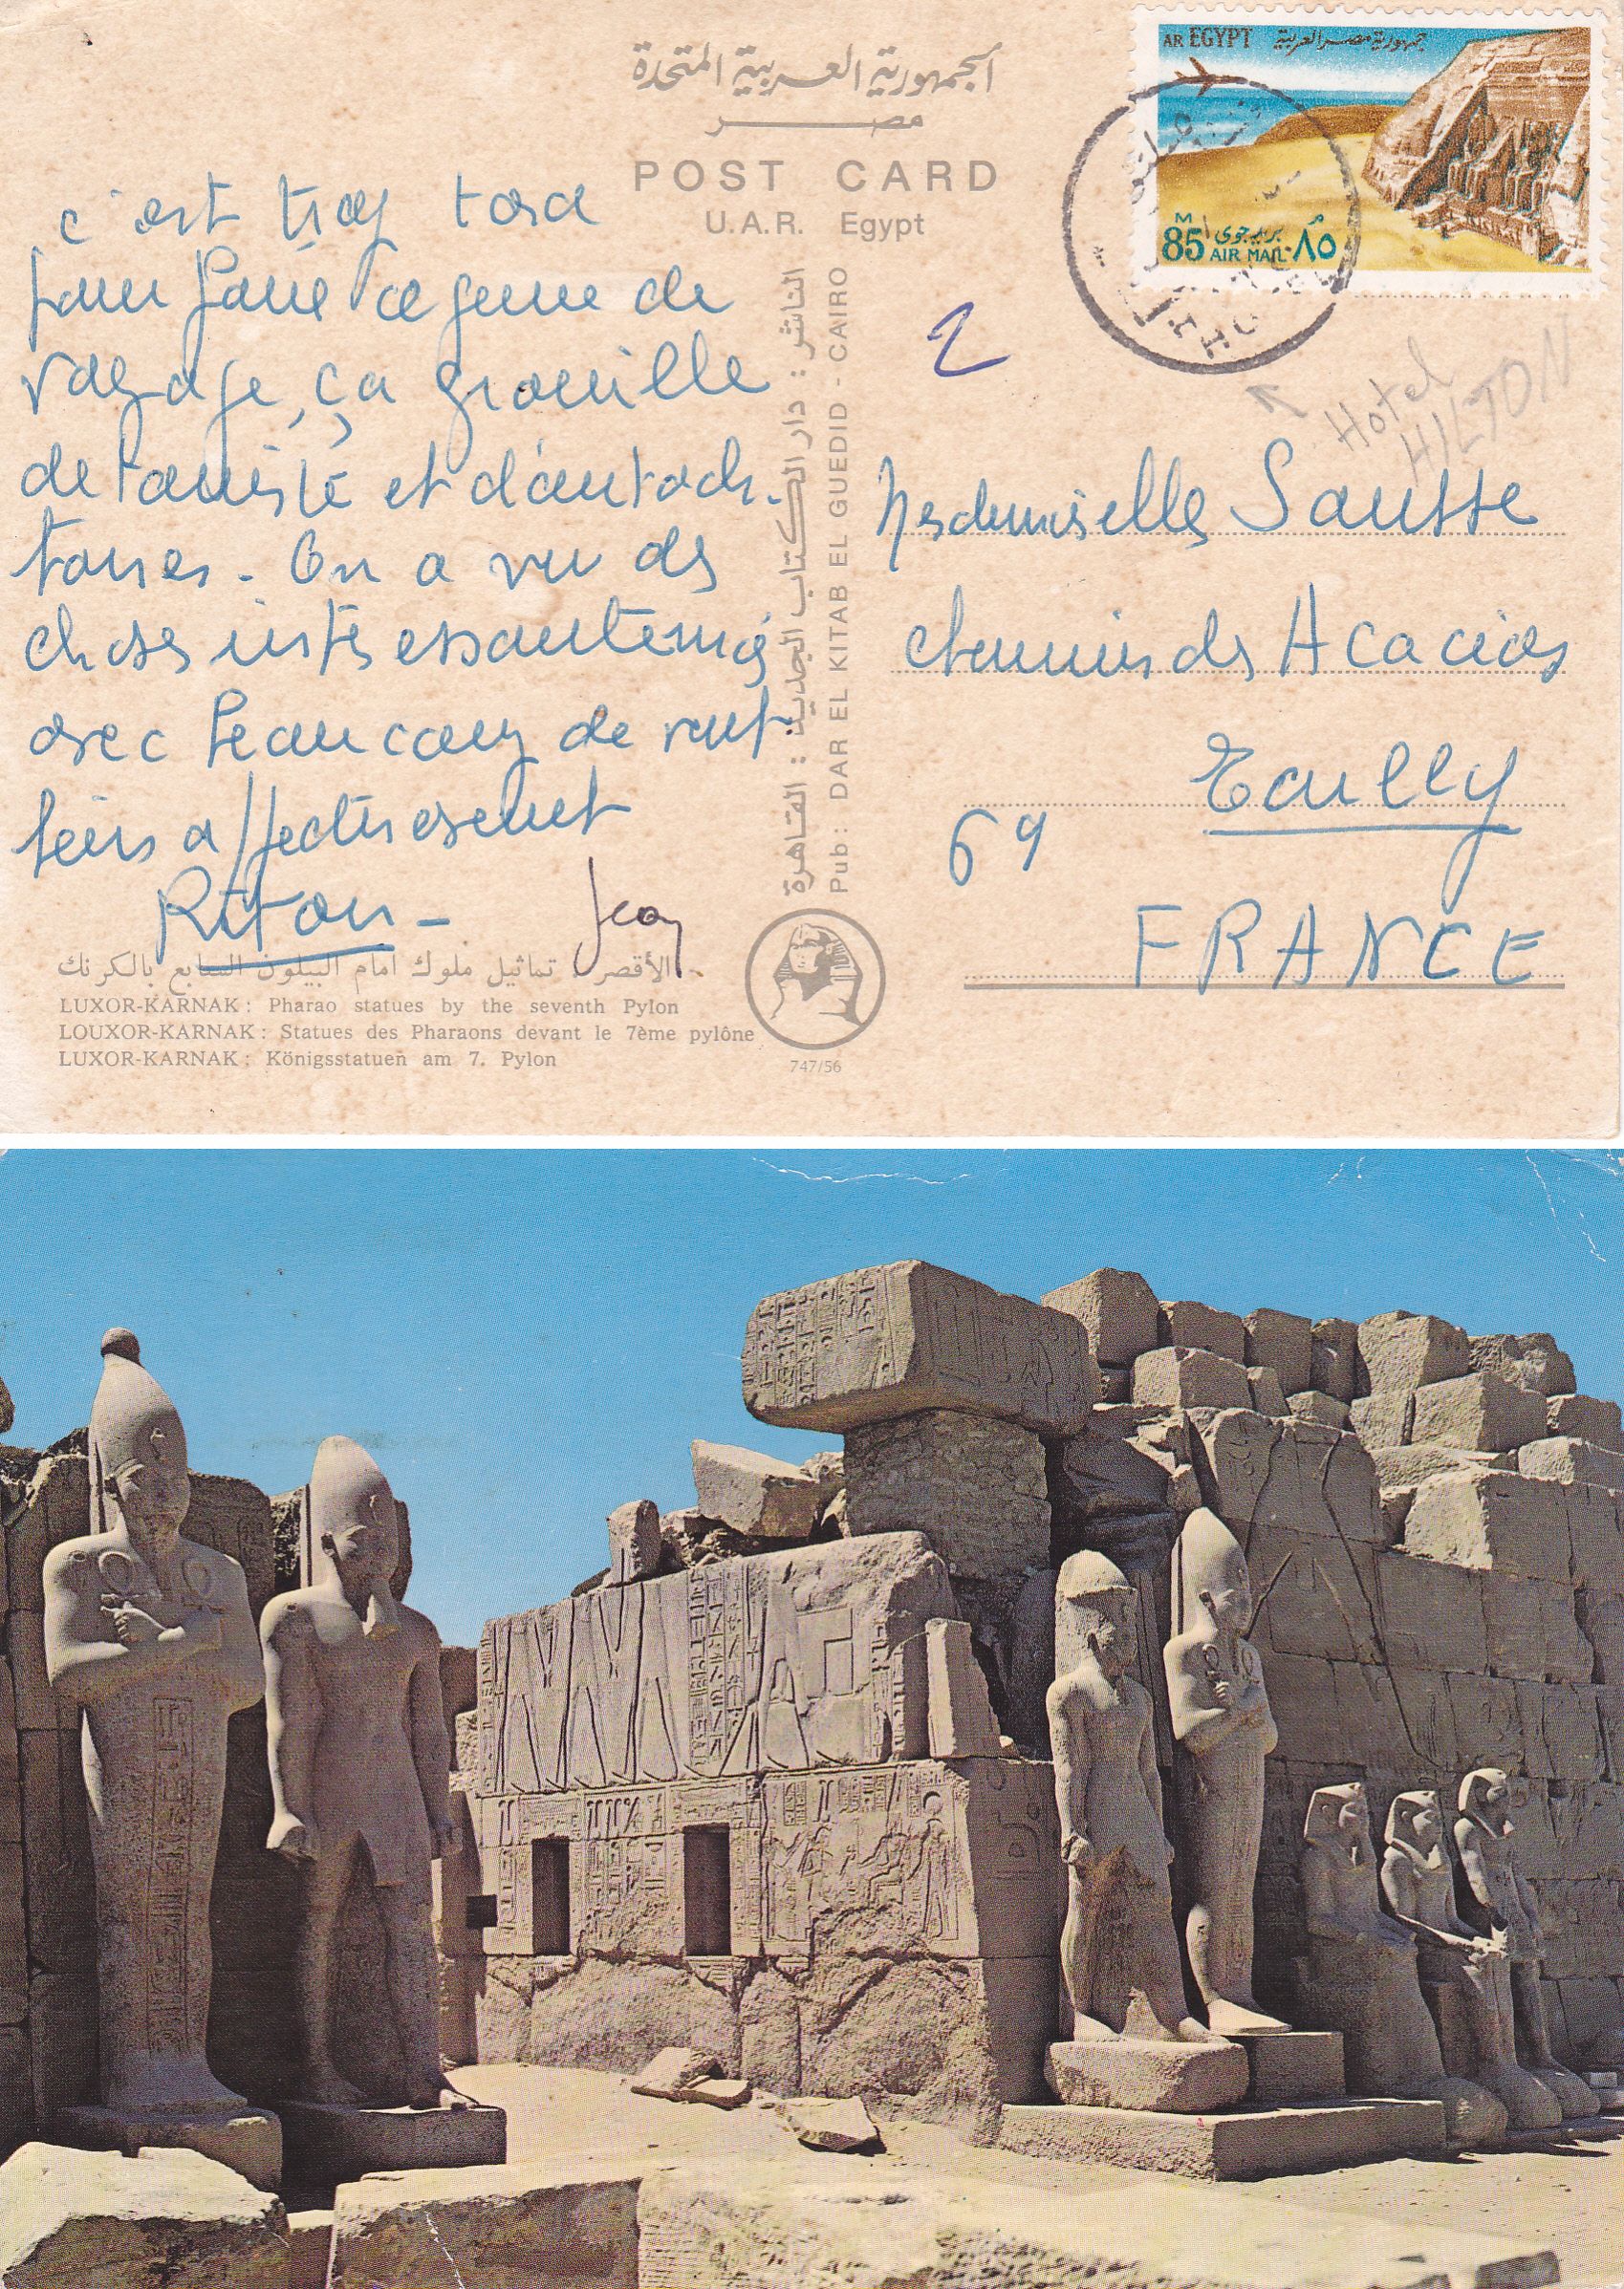 الجمهورية العربية المتحدة
مصر
POST CARD
U.A.R. Egypt
AR EGYPT جمهورية مصر العربية
M 85 AIR MAIL بريد جوى م ٨٥
HILTON
c'est trop tard
pour faire ce genre de
voyage, ça grouille
de touriste et d'autoch-
tones. On a vu des
choses intéressante mais
avec beaucoup de
affectueusement
Riton -
Jean
الناشر : دار الكتاب الجديد : القاهرة
Pub: DAR EL KITAB EL GUEDID - CAIRO
2
Hotel
HILTON
Mesdemoiselles Sausse
chemin des Acacias
Ecully
69
FRANCE
الأقصر : تماثيل ملوك امام البيلون السابع بالكرنك
LUXOR-KARNAK: Pharao statues by the seventh Pylon
LOUXOR-KARNAK: Statues des Pharaons devant le 7ème pylône
LUXOR-KARNAK: Königsstatuen am 7. Pylon
747/56